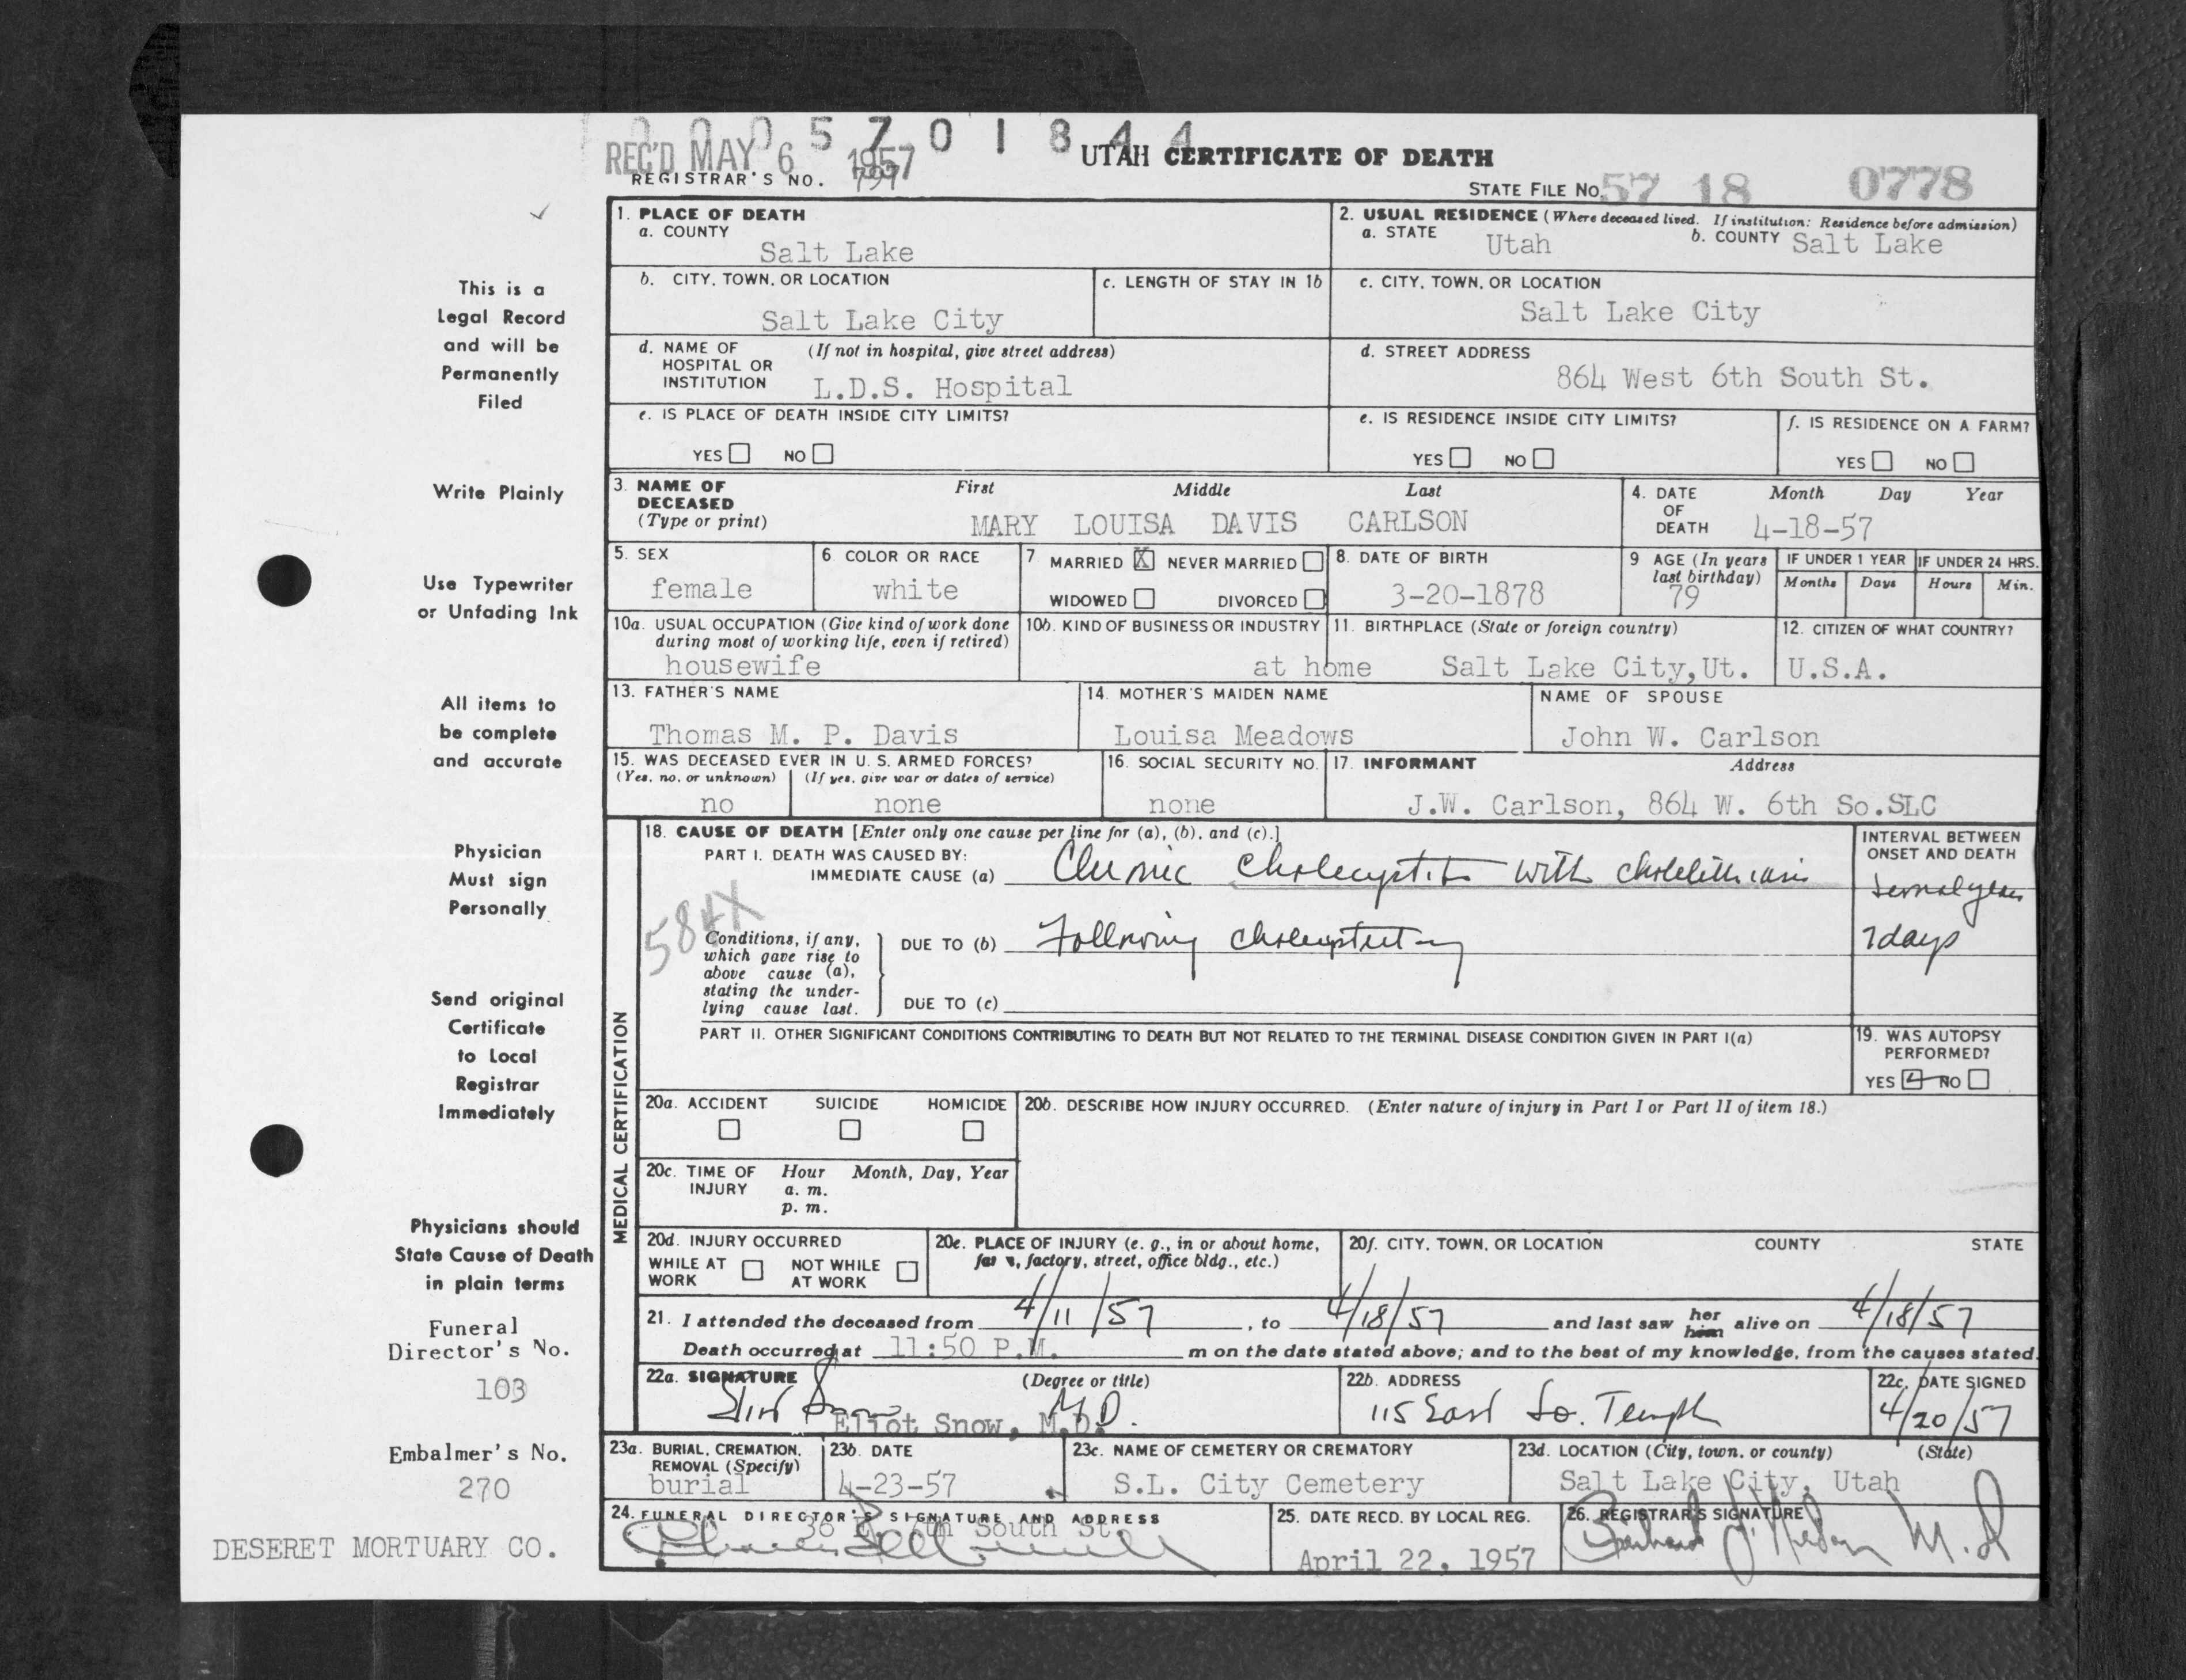 0005701844
REC'D MAY 6 1957
UTAH CERTIFICATE OF DEATH
REGISTRAR'S NO. 797
STATE FILE NO. 57 18 0778
1. PLACE OF DEATH
a. COUNTY
Salt Lake
2. USUAL RESIDENCE (Where deceased lived. If institution: Residence before admission)
a. STATE Utah b. COUNTY Salt Lake
b. CITY, TOWN, OR LOCATION
Salt Lake City
c. LENGTH OF STAY IN 1b
c. CITY, TOWN, OR LOCATION
Salt Lake City
d. NAME OF HOSPITAL OR INSTITUTION (If not in hospital, give street address)
L.D.S. Hospital
d. STREET ADDRESS
864 West 6th South St.
e. IS PLACE OF DEATH INSIDE CITY LIMITS?
YES NO
e. IS RESIDENCE INSIDE CITY LIMITS?
YES NO
f. IS RESIDENCE ON A FARM?
YES NO
3. NAME OF DECEASED (Type or print)
First Middle Last
MARY LOUISA DAVIS CARLSON
4. DATE OF DEATH
Month Day Year
4-18-57
5. SEX
female
6 COLOR OR RACE
white
7 MARRIED X NEVER MARRIED
WIDOWED DIVORCED
8. DATE OF BIRTH
3-20-1878
9 AGE (In years last birthday)
79
IF UNDER 1 YEAR
Months Days
IF UNDER 24 HRS.
Hours Min.
10a. USUAL OCCUPATION (Give kind of work done during most of working life, even if retired)
housewife
10b. KIND OF BUSINESS OR INDUSTRY
at home
11. BIRTHPLACE (State or foreign country)
Salt Lake City,Ut.
12. CITIZEN OF WHAT COUNTRY?
U.S.A.
13. FATHER'S NAME
Thomas M. P. Davis
14. MOTHER'S MAIDEN NAME
Louisa Meadows
NAME OF SPOUSE
John W. Carlson
15. WAS DECEASED EVER IN U. S. ARMED FORCES?
(Yes, no, or unknown) (If yes, give war or dates of service)
no none
16. SOCIAL SECURITY NO.
none
17. INFORMANT Address
J.W. Carlson, 864 W. 6th So.SLC
MEDICAL CERTIFICATION
18. CAUSE OF DEATH [Enter only one cause per line for (a), (b), and (c).]
PART I. DEATH WAS CAUSED BY:
IMMEDIATE CAUSE (a) Chronic cholecystitis with cholelithiasis
INTERVAL BETWEEN ONSET AND DEATH
several years
584X
Conditions, if any, which gave rise to above cause (a), stating the underlying cause last.
DUE TO (b) Following cholecystectomy
7 days
DUE TO (c)
PART II. OTHER SIGNIFICANT CONDITIONS CONTRIBUTING TO DEATH BUT NOT RELATED TO THE TERMINAL DISEASE CONDITION GIVEN IN PART I(a)
19. WAS AUTOPSY PERFORMED?
YES NO
20a. ACCIDENT SUICIDE HOMICIDE
20b. DESCRIBE HOW INJURY OCCURRED. (Enter nature of injury in Part I or Part II of item 18.)
20c. TIME OF INJURY
Hour Month, Day, Year
a. m.
p. m.
20d. INJURY OCCURRED
WHILE AT WORK NOT WHILE AT WORK
20e. PLACE OF INJURY (e. g., in or about home, farm, factory, street, office bldg., etc.)
20f. CITY, TOWN, OR LOCATION COUNTY STATE
21. I attended the deceased from 4/11/57, to 4/18/57 and last saw her him alive on 4/18/57
Death occurred at 11:50 P.M. m on the date stated above; and to the best of my knowledge, from the causes stated.
22a. SIGNATURE (Degree or title)
Eliot Snow M.D.
Eliot Snow, M.D.
22b. ADDRESS
115 East So. Temple
22c. DATE SIGNED
4/20/57
23a. BURIAL, CREMATION, REMOVAL (Specify)
burial
23b. DATE
4-23-57
23c. NAME OF CEMETERY OR CREMATORY
S.L. City Cemetery
23d. LOCATION (City, town, or county) (State)
Salt Lake City, Utah
24. FUNERAL DIRECTOR'S SIGNATURE AND ADDRESS
36 E. 7th South St.
25. DATE RECD. BY LOCAL REG.
April 22, 1957
26. REGISTRAR'S SIGNATURE
M.D
This is a
Legal Record
and will be
Permanently
Filed
Write Plainly
Use Typewriter
or Unfading Ink
All items to
be complete
and accurate
Physician
Must sign
Personally
Send original
Certificate
to Local
Registrar
Immediately
Physicians should
State Cause of Death
in plain terms
Funeral
Director's No.
103
Embalmer's No.
270
DESERET MORTUARY CO.